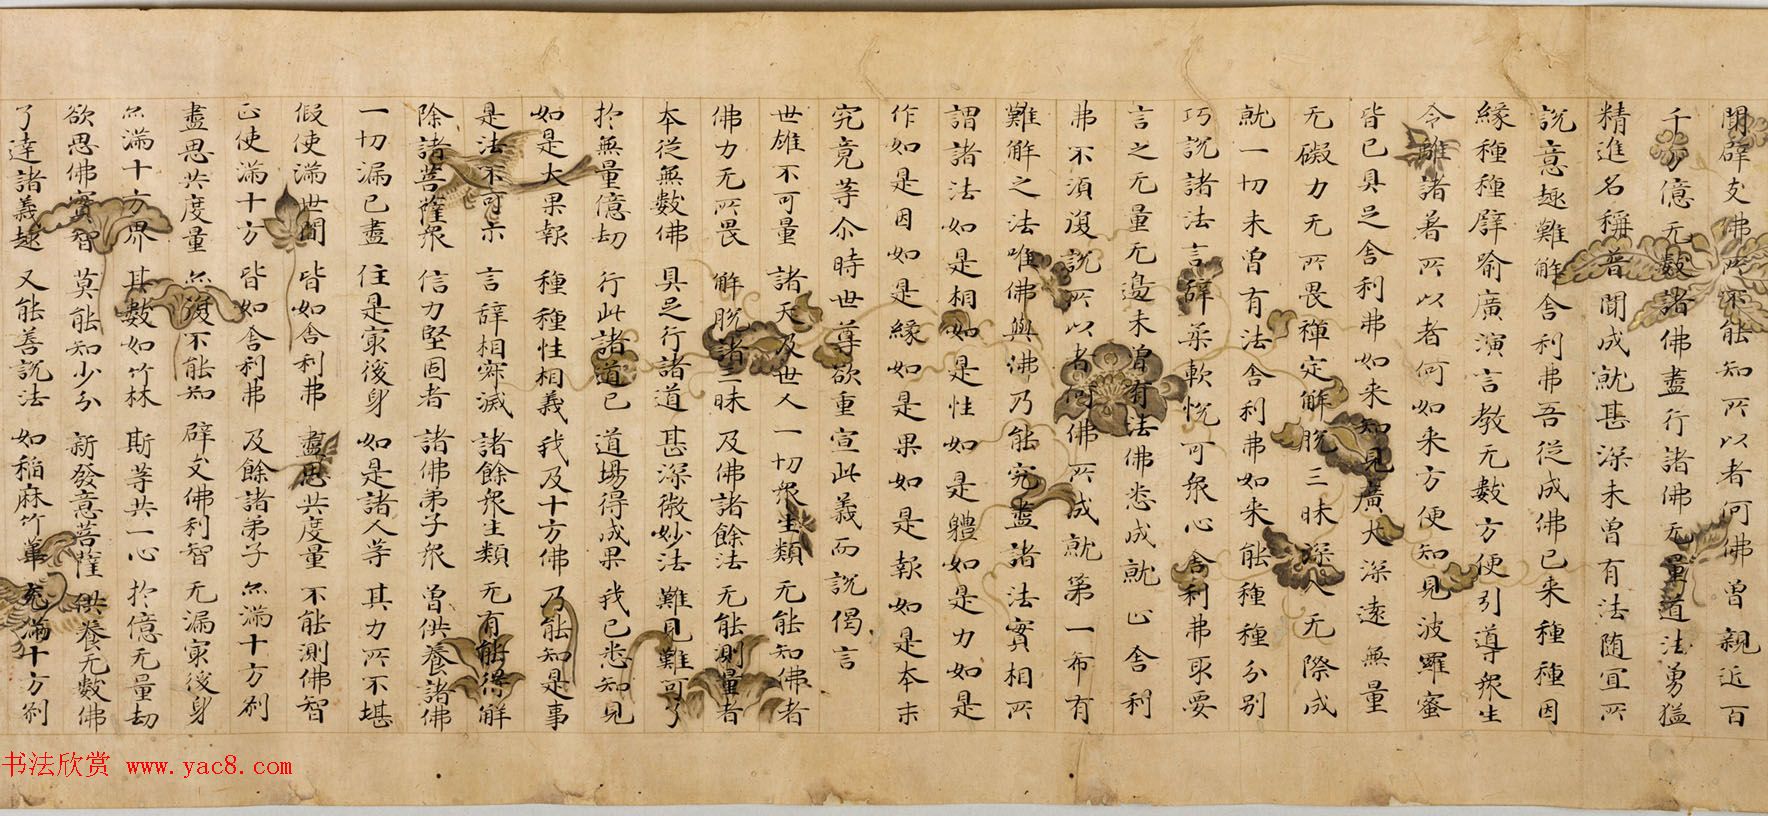 聞辟支佛所不能知所以者何佛曾親近百
千万億无數諸佛盡行諸佛无量道法勇猛
精進名稱普聞成就甚深未曾有法随宜所
說意趣難解舍利弗吾從成佛已来種種因
緣種種辟喻廣演言教无數方便引導衆生
令離諸著所以者何如来方便知見波羅蜜
皆已具足舍利弗如来知見廣大深遠無量
无礙力无所畏禪定解脫三昧深入无際成
就一切未曾有法舍利弗如来能種種分別
巧說諸法言辭柔軟悅可衆心舍利弗取要
言之无量无邊未曾有法佛悉成就止舍利
弗不湏復說所以者何佛所成就第一希有
難解之法唯佛與佛乃能究盡諸法實相所
謂諸法如是相如是性如是軆如是力如是
作如是因如是緣如是果如是報如是本末
究竟等尒時世尊欲重宣此義而說偈言
世雄不可量 諸天及世人 一切衆生類 无能知佛者
佛力无所畏 解脫諸三昧 及佛諸餘法 无能測量者
本從無數佛 具足行諸道 甚深微妙法 難見難可了
於無量億劫 行此諸道已 道場得成果 我已悉知見
如是大果報 種種性相義 我及十方佛 乃能知是事
是法不可示 言辭相寂滅 諸餘衆生類 无有能得解
除諸菩薩衆 信力堅固者 諸佛弟子衆 曾供養諸佛
一切漏已盡 住是最後身 如是諸人等 其力所不堪
假使滿世間 皆如舍利弗 盡思共度量 不能測佛智
正使滿十方 皆如舍利弗 及餘諸弟子 亦滿十方刹
盡思共度量 亦復不能知 辟支佛利智 无漏最後身
亦滿十方界 其數如竹林 斯等共一心 於億无量劫
欲思佛實智 莫能知少分 新發意菩薩 供養无數佛
了達諸義趣 又能善說法 如稻麻竹葦 充滿十方刹
书法欣赏 www.yac8.com